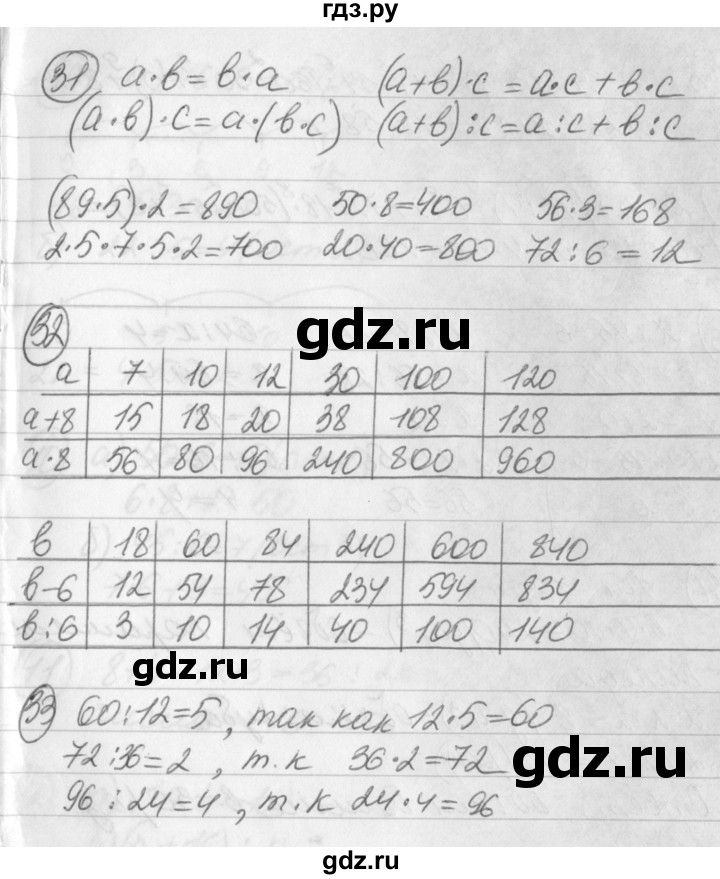 гдз.ру
31 а·в=в·а (а+в)·с=а·с+в·с
(а·в)·с=а·(в·с) (а+в):с=а:с+в:с
(89·5)·2=890 50·8=400 56·3=168
2·5·7·5·2=700 20·40=800 72:6=12
32
gdz.ru
а 7 10 12 30 100 120
а+8 15 18 20 38 108 128
а·8 56 80 96 240 800 960
в 18 60 84 240 600 840
в-6 12 54 78 234 594 834
в:6 3 10 14 40 100 140
gdz.ru
33 60:12=5, так как 12·5=60
72:36=2, т.к 36·2=72
gdz.ru
96:24=4, т.к 24·4=96
gdz.ru